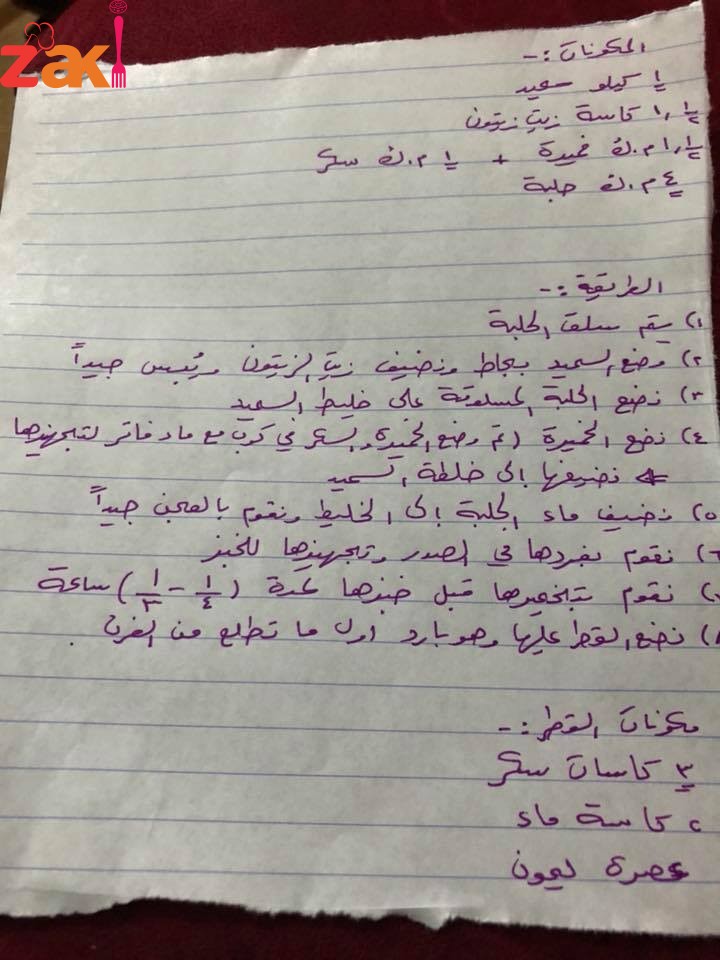 zaki
المكونات :-
١ كيلو سميد
١,١/٢ كاسة زيت زيتون
١,١/٢ م.ك خميرة + ١ م.ك سكر
٤ م.ك حلبة
الطريقة :-
١) يتم سلق الحلبة
٢) وضع السميد بجاط ونضيف زيت الزيتون ويُبس جيداً
٣) نضع الحلبة المسلوقة على خليط السميد
٤) نضع الخميرة (تم وضع الخميرة والسكر في كوب مع ماء فاتر لتجهيزها
نضيفها إلى خلطة السميد
٥) نضيف ماء الحلبة إلى الخليط ونقوم بالعجن جيداً
٦) نقوم بفردها في الصدر وتجهيزها للخبز
٧) نقوم بتخميرها قبل خبزها لمدة (١/٤ - ١/٣) ساعة
٨) نضع القطر عليها وهو بارد اول ما تطلع من الفرن .
مكونات القطر :-
٣ كاسات سكر
٢ كاسة ماء
عصرة ليمون